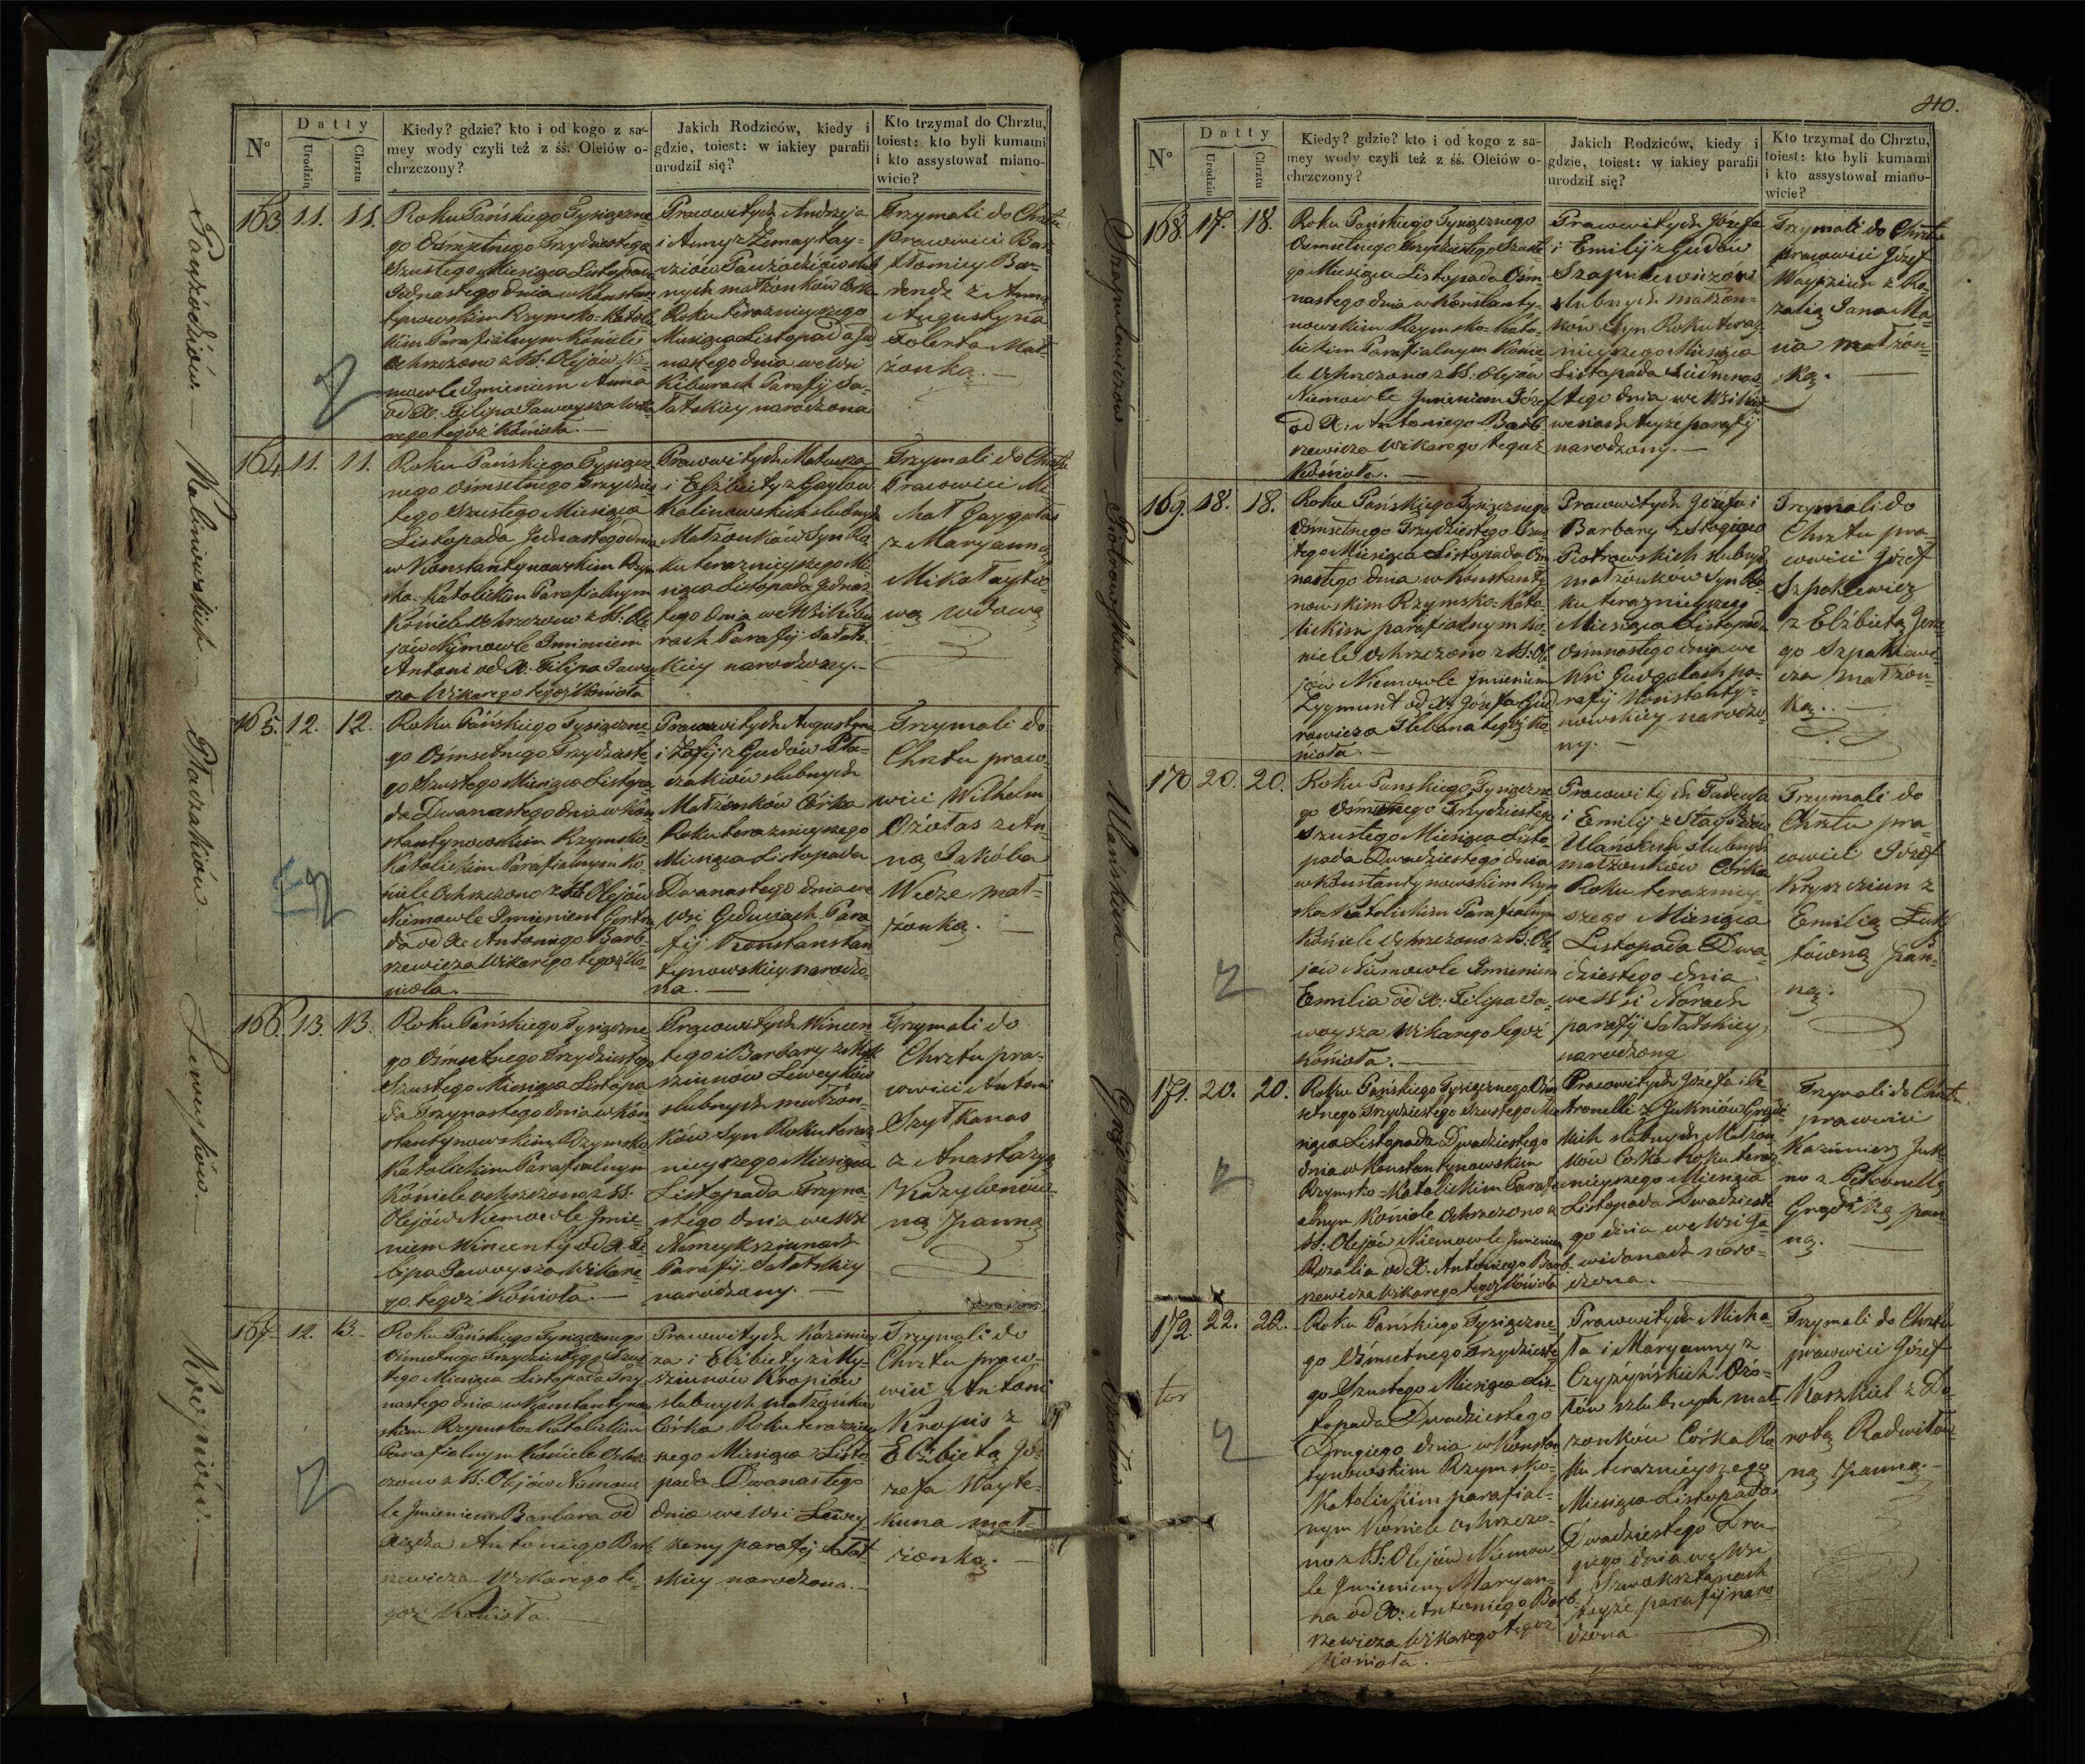 Nº
Datty
Urodzin
Chrztu
Kiedy? gdzie? kto i od kogo z sa-
mey wody czyli też z śś. Oleiów o-
chrzczony?
Jakich Rodziców, kiedy i
gdzie, toiest: w iakiey parafii
urodził się?
Kto trzymał do Chrztu,
toiest: kto byli kumami
i kto assystował miano-
wicie?
163 11. 11.
Roku Pańskiego Tysiączne-
go Ośmsetnego Trzydziestego
Szustego Miesiąca Listopada
Jednastego dnia w Konstan-
tynowskim Rzymsko-Katolic-
kim Parafialnym Kościele
Ochrzczono z SS. Olejów Nie-
mowle Imieniem Anna
od X. Filipa Jawoysza Wika-
rego tegoż Kościoła.
Prawowitych Andrzeja
i Anny z
ślub-
nych małżonków Córka
Roku teraznieyszego
Miesiąca Listopada Jed-
nastego dnia we Wsi
Kiburach Parafij Sa-
łatskiey narodzona
Trzymali do Chrztu
prawowici Bar-
tłomiey
z Anną
Augustyna
Małż-
żonką.
164 11. 11.
Roku Pańskiego Tysiącz-
nego Ośmsetnego Trzydzies-
tego Szustego Miesiąca
Listopada Jednastego dnia
w Konstantynowskim Rzym-
sko-Katolickim Parafialnym
Kościele Ochrzczono z SS: Ole-
jów Niemowle Imieniem
Antoni od X. Filipa Jawoy-
sza Wikarego tegoż Kościoła
Prawowitych Mateusza
i Elżbiety z Gaylów
Kalinowskich slubnych
Małżonków Syn Ro-
ku teraznieyszego Mie-
siąca Listopada Jednas-
tego dnia we Wsi Kibu-
rach Parafij Sałats-
kiey narodzony.
Trzymali do Chrztu
Prawowici Mi-
chał Gaygalas
z Maryanną
Mikołayte-
wą wdową
165. 12. 12.
Roku Pańskiego Tysiączne-
go Ośmsetnego Trzydzieste-
go Szustego Miesiąca Listopa-
da Dwanastego dnia w Kon-
stantynowskim Rzymsko-
Katolickim Parafialnym Ko-
ściele Ochrzczono z SS. Olejów
Niemowle Imieniem Gertru-
da od X. Antoniego Barb-
rzewicza Wikarego tegoż Ko-
ścioła.
Prawowitych Augustyna
i Zofij z Gudów Pta-
szaków slubnych
Małżonków Córka
Roku teraznieyszego
Miesiąca Listopada
Dwanastego dnia we
Wsi Gieduciach Para
fij Konstanstan
tynowskiey narodzo-
na.
Trzymali do
Chrztu prawo-
wici Wilhelm
Ożołas z An-
ną Jakóba
Wedze mał-
żonką.
166. 13. 13.
Roku Pańskiego Tysiączne-
go Ośmsetnego Trzydziestego
Szustego Miesiąca Listopa-
da Trzynastego dnia w Kon-
stantynowskim Rzymsko
Katolickim Parafialnym
Kościele ochrzczono z SS:
Olejów Niemowle Imie-
niem Wincenty od X. Fi-
lipa Jawoysza Wikare-
go tegoż Kościoła.
Prawowitych Wincen-
tego i Barbary z
Leweyków
slubnych małżon-
ków Syn Roku teraz-
nieyszego Miesiąca
Listopada Trzyna-
stego dnia we Wsi
Nemeykszunach
Parafij Sałatskiey
narodzony.
Trzymali do
Chrztu pra-
wowici Antoni
Szytkanas
z Anastazyą
Kazylonów-
ną Panną
167. 12. 13.
Roku Pańskiego Tysiącznego
Ośmsetnego Trzydziestego Szus-
tego Miesiąca Listopada Trzy-
nastego dnia w Konstantynow-
skim Rzymsko Katolickim
Parafialnym Kościele Ochrz-
czono z SS: Olejów Niemow-
le Imieniem Barbara od
Xiędza Antoniego Barb-
rzewicza Wikarego te-
goż Kościoła.
Prawowitych Kazimie-
rza i Elżbiety z My-
sziunów Kropiów
slubnych małżonków
Córka Roku teraznie-
szego Miesiąca Listo-
pada Dwanastego
dnia we Wsi Lewey-
kany parafij Sałat-
skiey narodzona.
Trzymali do
Chrztu prawo-
wici Antoni
Kropis z
Elżbietą Jó-
zefa Wayte-
kuna mał-
żonką.
Kalinowskich
Ptaszaków
Leweyków
Kropiów
40.
Nº
Datty
Urodzin
Chrztu
Kiedy? gdzie? kto i od kogo z sa-
mey wody czyli też z śś. Oleiów o-
chrzczony?
Jakich Rodziców, kiedy i
gdzie, toiest: w iakiey parafii
urodził się?
Kto trzymał do Chrztu,
toiest: kto byli kumami
i kto assystował miano-
wicie?
168. 17. 18.
Roku Pańskiego Tysiącznego
Ośmsetnego Trzydziestego Szuste-
go Miesiąca Listopada Ośm-
nastego dnia w Konstanty-
nowskim Rzymsko-Kato-
lickim Parafialnym Kości-
le Ochrzczono z SS: Olejów
Niemowle Imieniem Józef
od X. Antoniego Barb-
rzewicza Wikarego tegoż
Kościoła.
Prawowitych Józefa
i Emilij z Gudów
Szapulewiczów
slubnych małżon-
ków Syn Roku teraz-
nieyszego Miesiąca
Listopada Siedmnas-
tego dnia we Wsi
teyże parafij
narodzony.
Trzymali do Chrztu
prawowici Józef
z Ro-
zalią Jana
małżon-
ką.
169. 18. 18.
Roku Pańskiego Tysiącznego
Ośmsetnego Trzydziestego Szus-
tego Miesiąca Listopada Ośm-
nastego dnia w Konstanty-
nowskim Rzymsko-Kato-
lickim parafialnym Ko-
ściele Ochrzczono z SS: Ol-
jów Niemowle Imieniem
Zygmunt od X. Józefa
Plebana tegoż Ko-
ścioła.
Prawowitych Józefa i
Barbary z
Piotrowskich slubnych
małżonków Syn Ro-
ku teraznieyszego
Miesiąca Listopada
Osmnastego dnia we
Wsi Gudgalach pa-
rafij Konstanty-
nowskiey narodzo-
ny.
Trzymali do
Chrztu pra-
wowici Józef
Szpoklewicz
z Elżbietą Jerze-
go Szpaklewi-
cza małżon-
ką.
170 20. 20.
Roku Panskiego Tysiączne-
go Ośmsetnego Trzydziestego
Szustego Miesiąca Listo-
pada Dwadziestego dnia
w Konstantynowskim Rzym
sko-Katolickim Parafialnym
Kościele Ochrzczono z SS: Ole-
jów Niemowle Imieniem
Emilia od X: Filipa Ja-
woysza Wikarego tegoż
Kościoła.
Prawowitych Tadeusza
i Emilij z
Ulańskich slubnych
małżonków Córka
Roku terazniey-
szego Miesiąca
Listopada Dwa-
dziestego dnia
we Wsi Norach
parafij Sałatskiey
narodzona
Trzymali do
Chrztu pra-
wowici Józef
Kryszciun z
Emilią
Pan-
ną.
171. 20. 20.
Roku Pańskiego Tysiącznego Ośm
setnego Trzydziestego Szustego Mie
siąca Listopada Dwadziestego
dnia w Konstantynowskim
Rzymsko-Katolickim Parafi
alnym Kościele Ochrzczono z
SS: Olejów Niemowle Imieniem
Rozalia od X. Antoniego Barb-
rzewicza Wikarego tegoż Kościoła
Prawowitych Józefa i Pe-
tronelli z
slubnych Małżon-
ków Córka Roku teraz-
nieyszego Miesiąca
Listopada Dwadzieste-
go dnia we Wsi Ga-
widanach naro-
dzona.
Trzymali do Chrztu
prawowici
Kazimierz
z Petronellą
pan-
ną.
172. 22. 22.
Roku Pańskiego Tysiączne-
go Ośmsetnego Trzydzieste-
go Szustego Miesiąca Lis-
topada Dwudziestego
Drugiego dnia w Konstan
tynowskim Rzymsko-
Katolickim parafial-
nym Kościele Ochrzczo-
no z SS: Olejów Niemow-
le Imieniem Maryan-
na od X: Antoniego Barb-
rzewicza Wikarego tegoż
Kościoła.
Prawowitych Micha-
ła i Maryanny z
Czyżyńskich Ożo-
łów szlubnych mał-
żonków Córka Ro-
ku teraznieyszego
Miesiąca Listopada
Dwadziestego Dru-
giego dnia we Wsi
teyże parafij naro-
dzona
Trzymali do Chrztu
prawowici Józef
Kaszkiel z Do-
rotą
Panną.
Szapulewiczów
Piotrowskich
Ulańskich